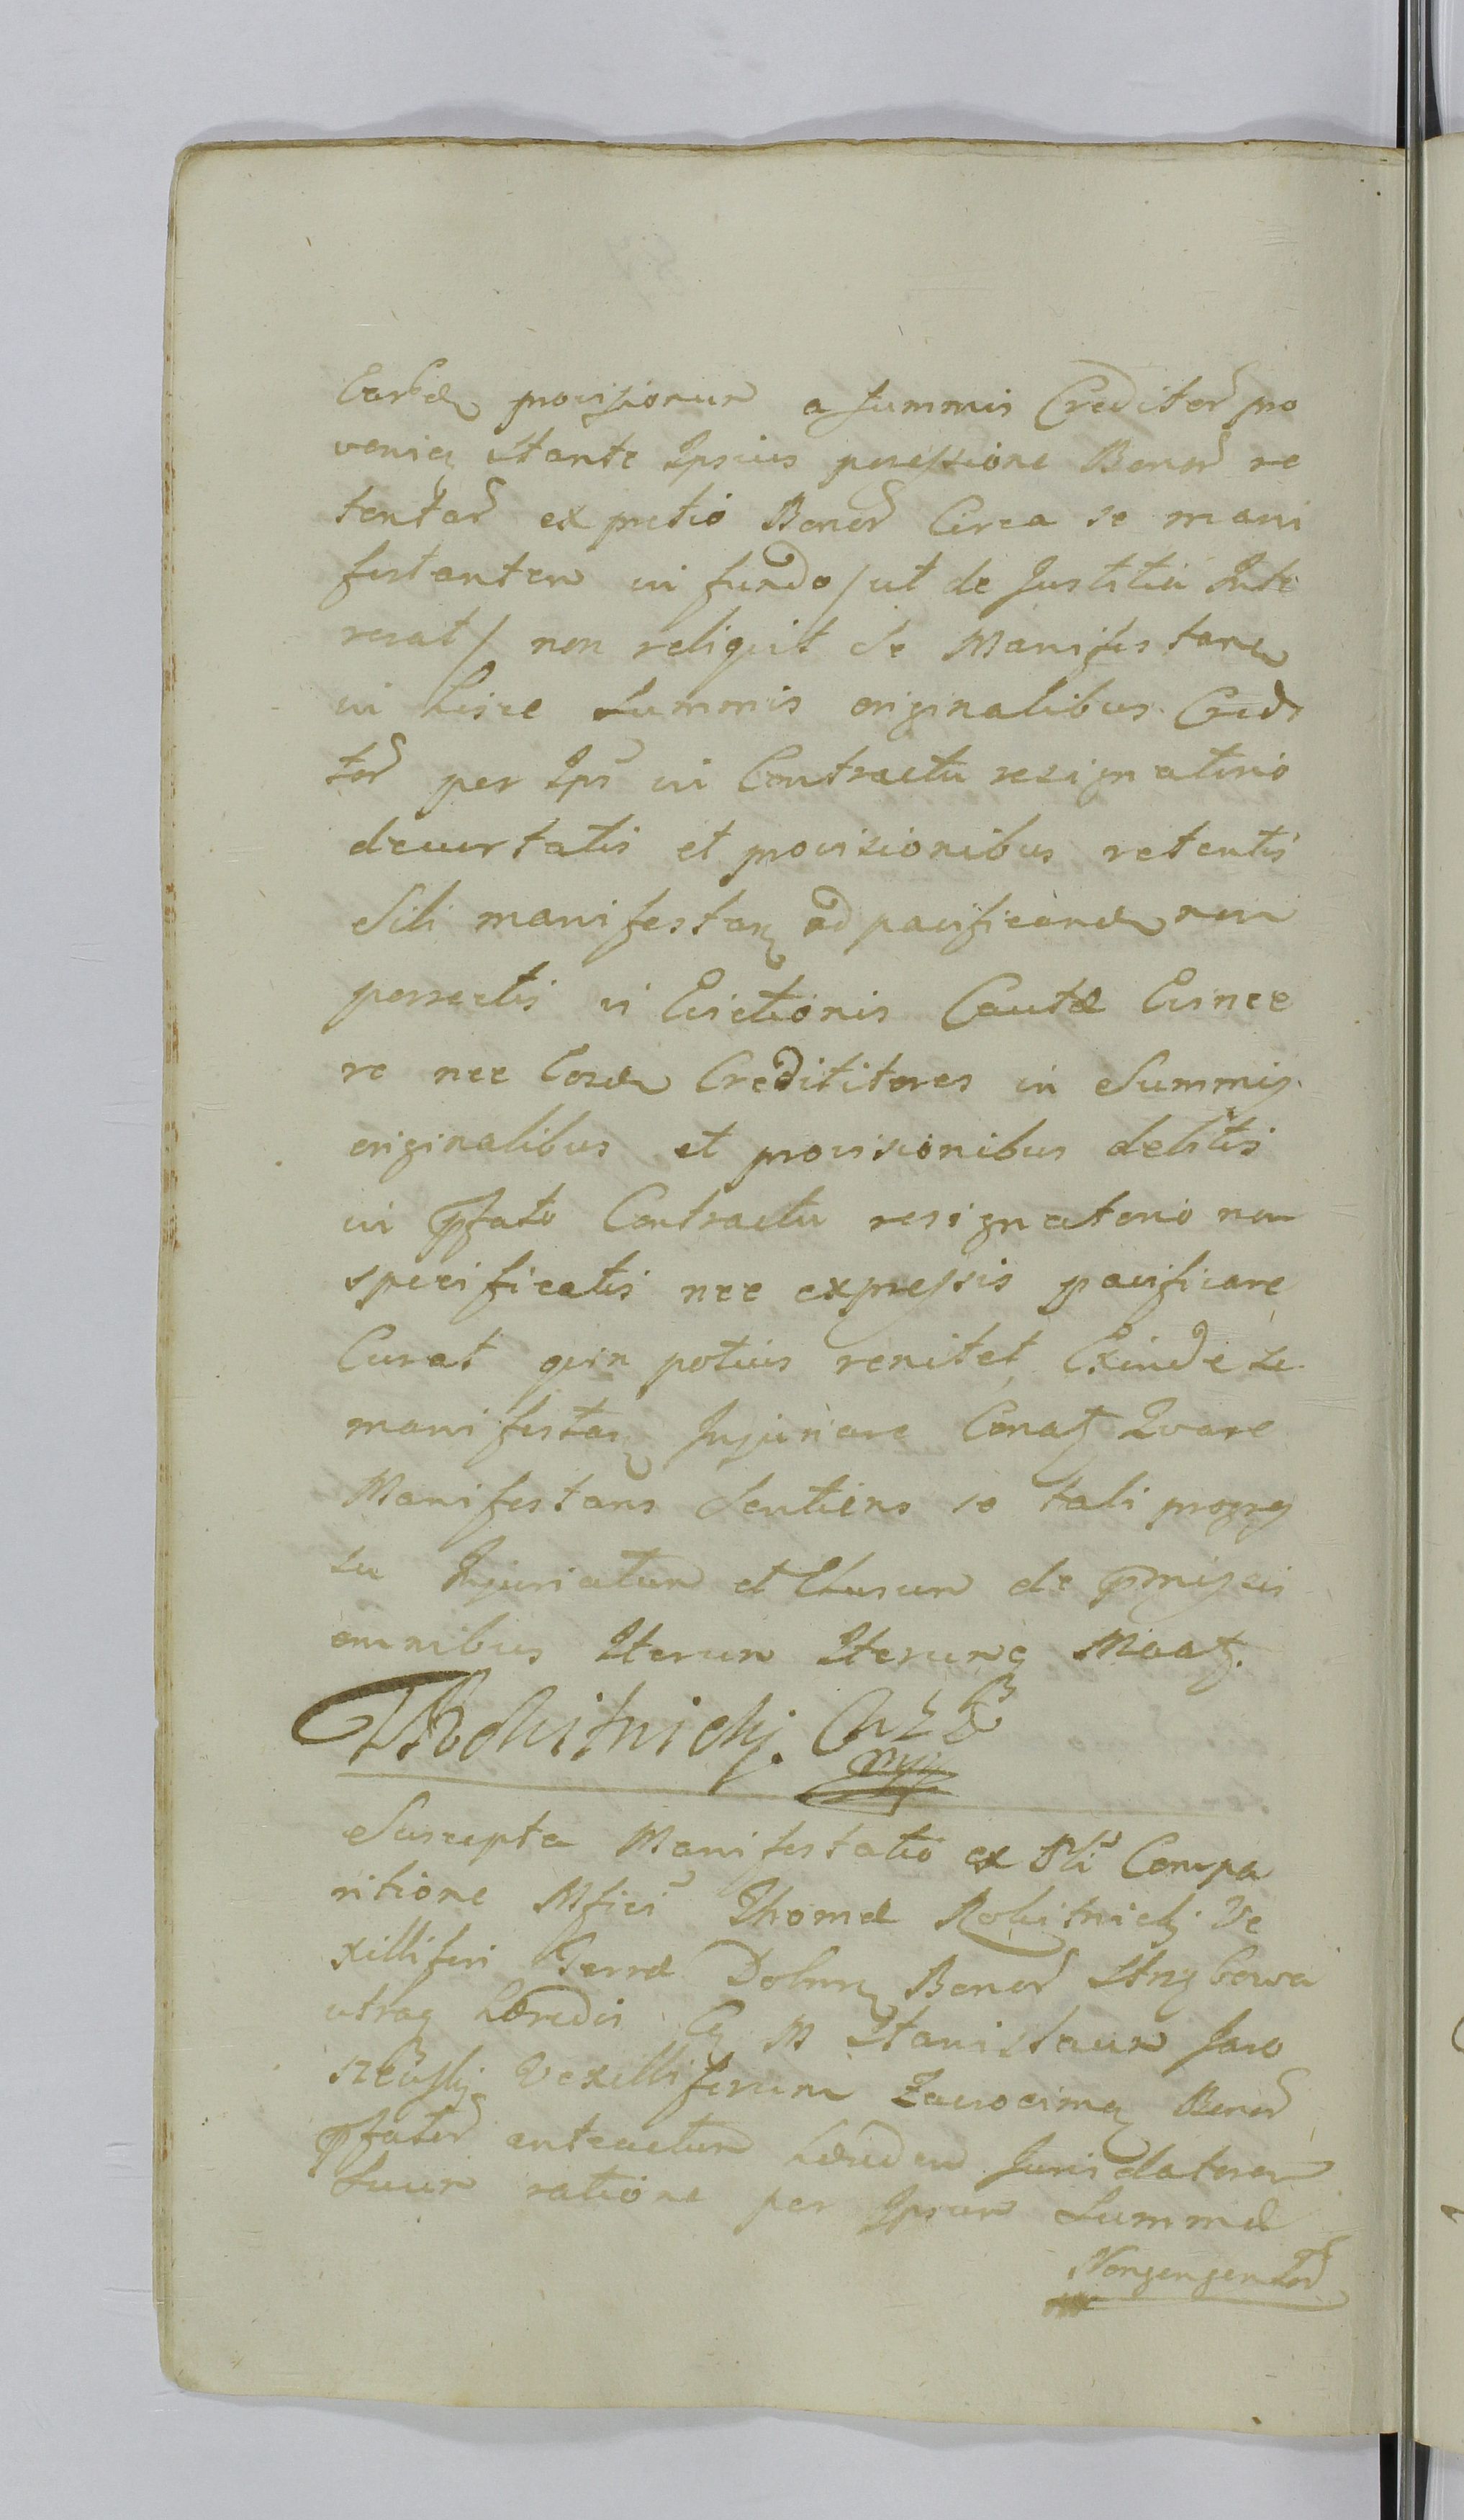 Earūd provisionum a summis Creditor pro
venien stante Ipsius possessione Bonor re
tentar ex pretio Bonor Circa se mani
festantem in fundo / ut de Justitia Inte
rerat / non reliquit de Manifestane
in hisce Summis originalibus Credi
tor per Ips in Contractu resignatorio
decurtatis et provisionibus retentis
Sibi manifestan ad pacificand non
porrectis vi Evictionis Cautæ Evince
re nec Eosd Credititores in Summis
originalibus et provisionibus debitis
in pfato Contractu resignatorio non
specificatis nec expressis pacificare
Curat quin potius renitet, Exinde se
manifestan Injuriare Conat Quare
Manifestans Sentiens se tali progres
su Injuriatum et Elusum de pmissis
omnibus Iterum Iterumq Maat.
TRokitnicki.
Suscepta Manifestatio ex Pli Compa
ritione Mfici Thomæ Rokitnicki Ve
xilliferi Terræ Dobrin Bonor Strzbowa
utraq hæredis Cn M Stanislaum Jaro
szewski Vexilliferum Zawocimen Bonor
pfator anteactum hæredem Jurisdatorem
Suum ratione per Ipsum Summæ
Nongengentor